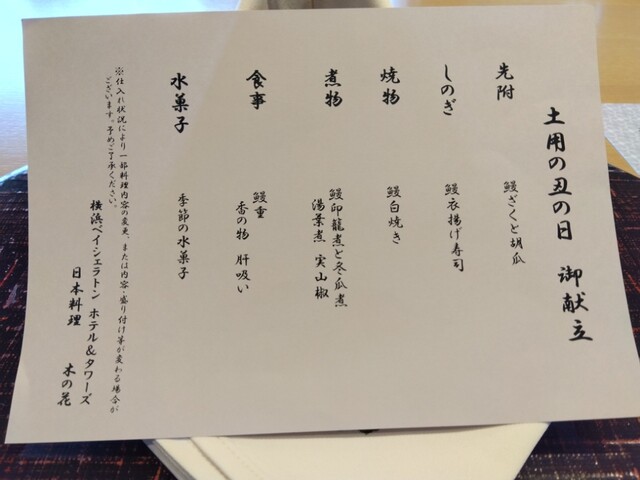 土用の丑の日 御献立
先附
鰻ざくと胡瓜
しのぎ
鰻衣揚げ寿司
焼物
鰻白焼き
煮物
鰻印籠煮と冬瓜煮
湯葉煮 実山椒
食事
鰻重
香の物 肝吸い
水菓子
季節の水菓子
※仕入れ状況により一部料理内容の変更、または内容・盛り付け等が変わる場合が
ございます。予めご了承ください。
横浜ベイシェラトン ホテル&タワーズ
日本料理 木の花